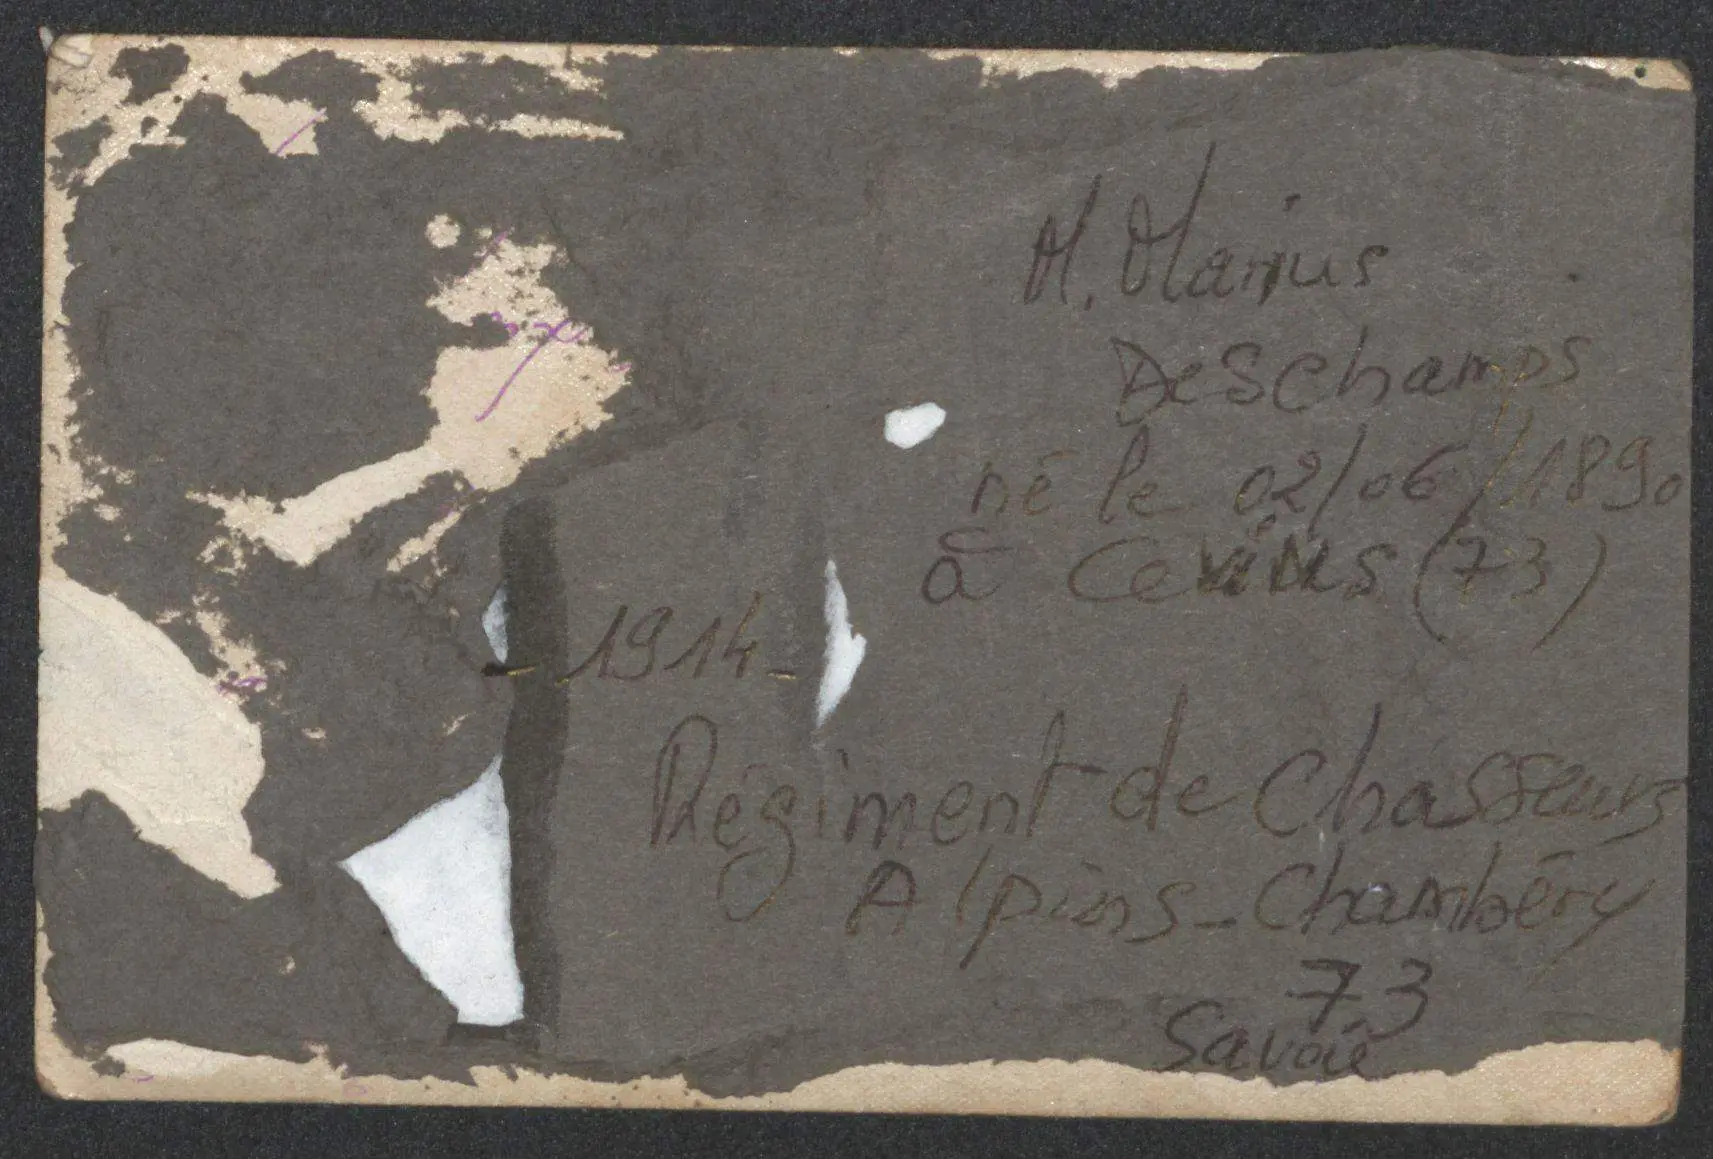 M. Marius
Deschamps
né le 02/06/1890
à Cevins (73)
- 1914 -
Régiment de Chasseurs
Alpins - Chambéry
73
Savoie